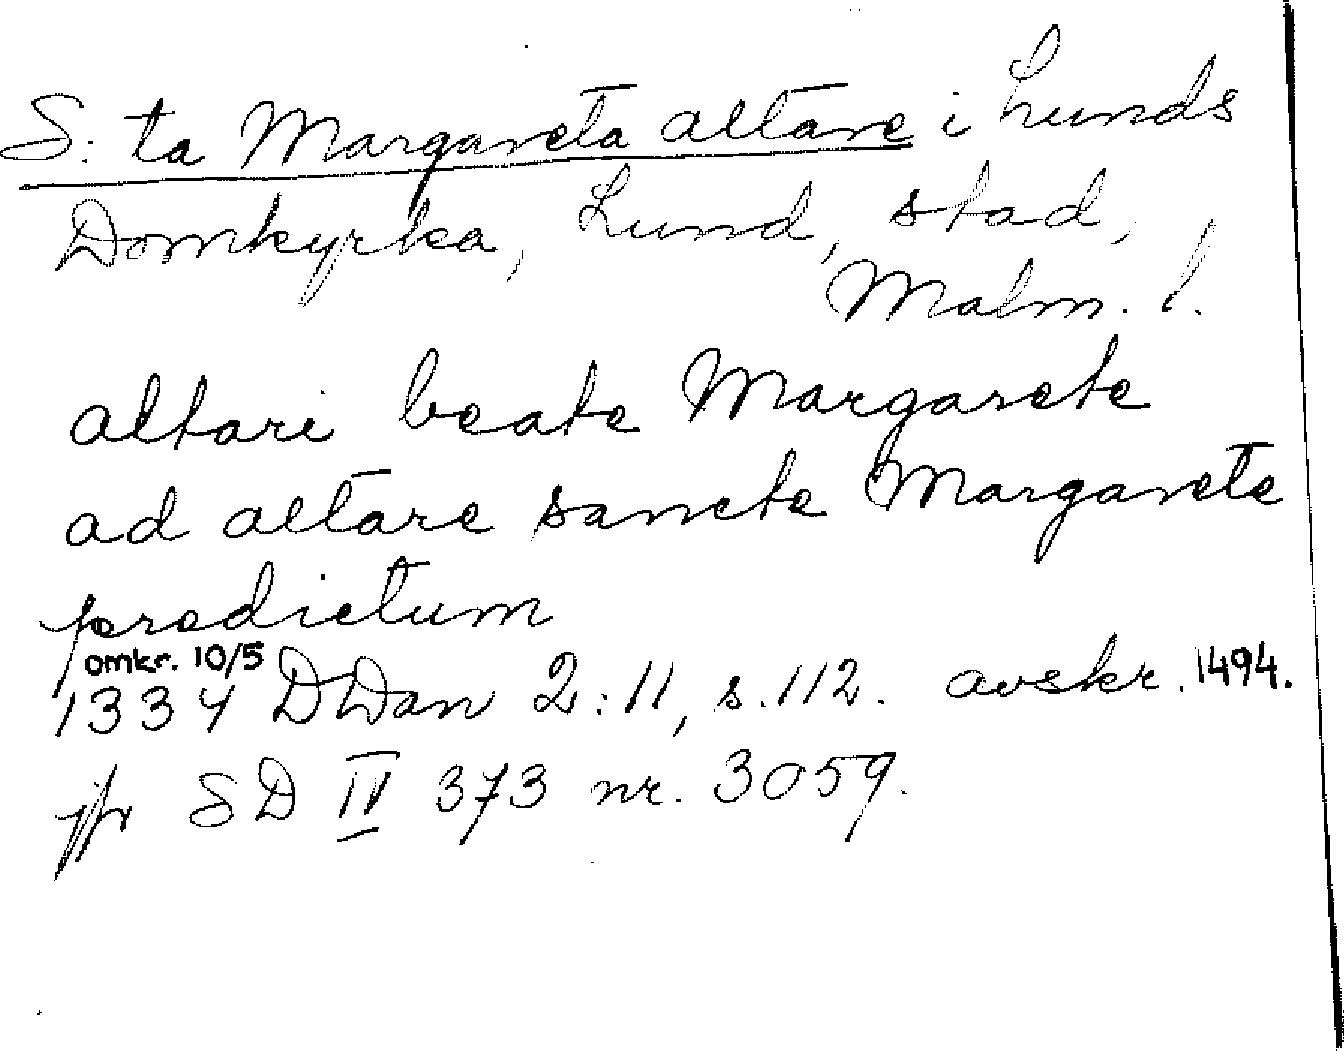 S:ta Margareta altare i Lunds
Domkyrka, Lund, stad,
Malm. l.
altari beate Margarete
ad altare sancte Margarete
predictum
omkr. 10/5
1334 DDan 2:11, s.112. avskr. 1494.
jfr SD IV 373 nr. 3059.